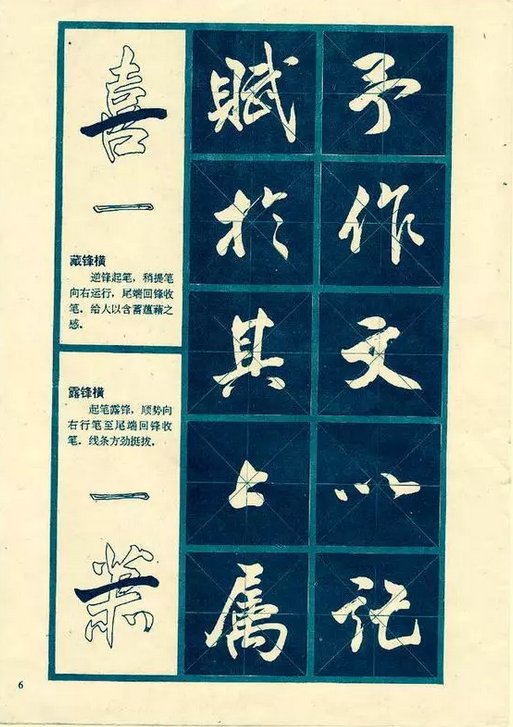 喜
一
藏锋横
逆锋起笔，稍提笔
向右运行，尾端回锋收
笔，给人以含蓄蕴藉之
感。
露锋横
起笔露锋，顺势向
右行笔至尾端回锋收
笔，线条方劲挺拔。
一
赋於其上属
予作文以记
6